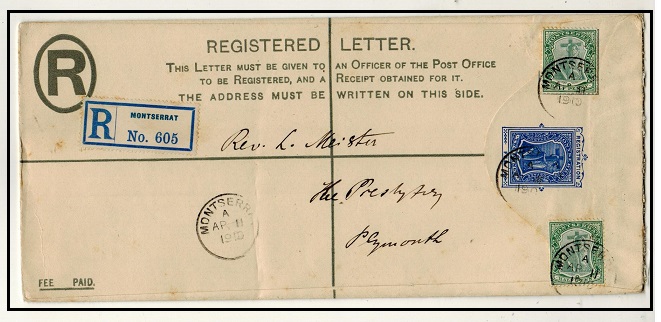 R
REGISTERED LETTER.
THIS LETTER MUST BE GIVEN TO AN OFFICER OF THE POST OFFICE
TO BE REGISTERED, AND A RECEIPT OBTAINED FOR IT.
THE ADDRESS MUST BE WRITTEN ON THIS SIDE.
MONTSERRAT
R No. 605
Rev. L. Meister
The Presbytery
Plymouth
MONTSERR
A
AP 11
MONTSERRAT
MONTSERR
A
REGISTRATION
MONTS
MONTSER
A
FEE PAID.